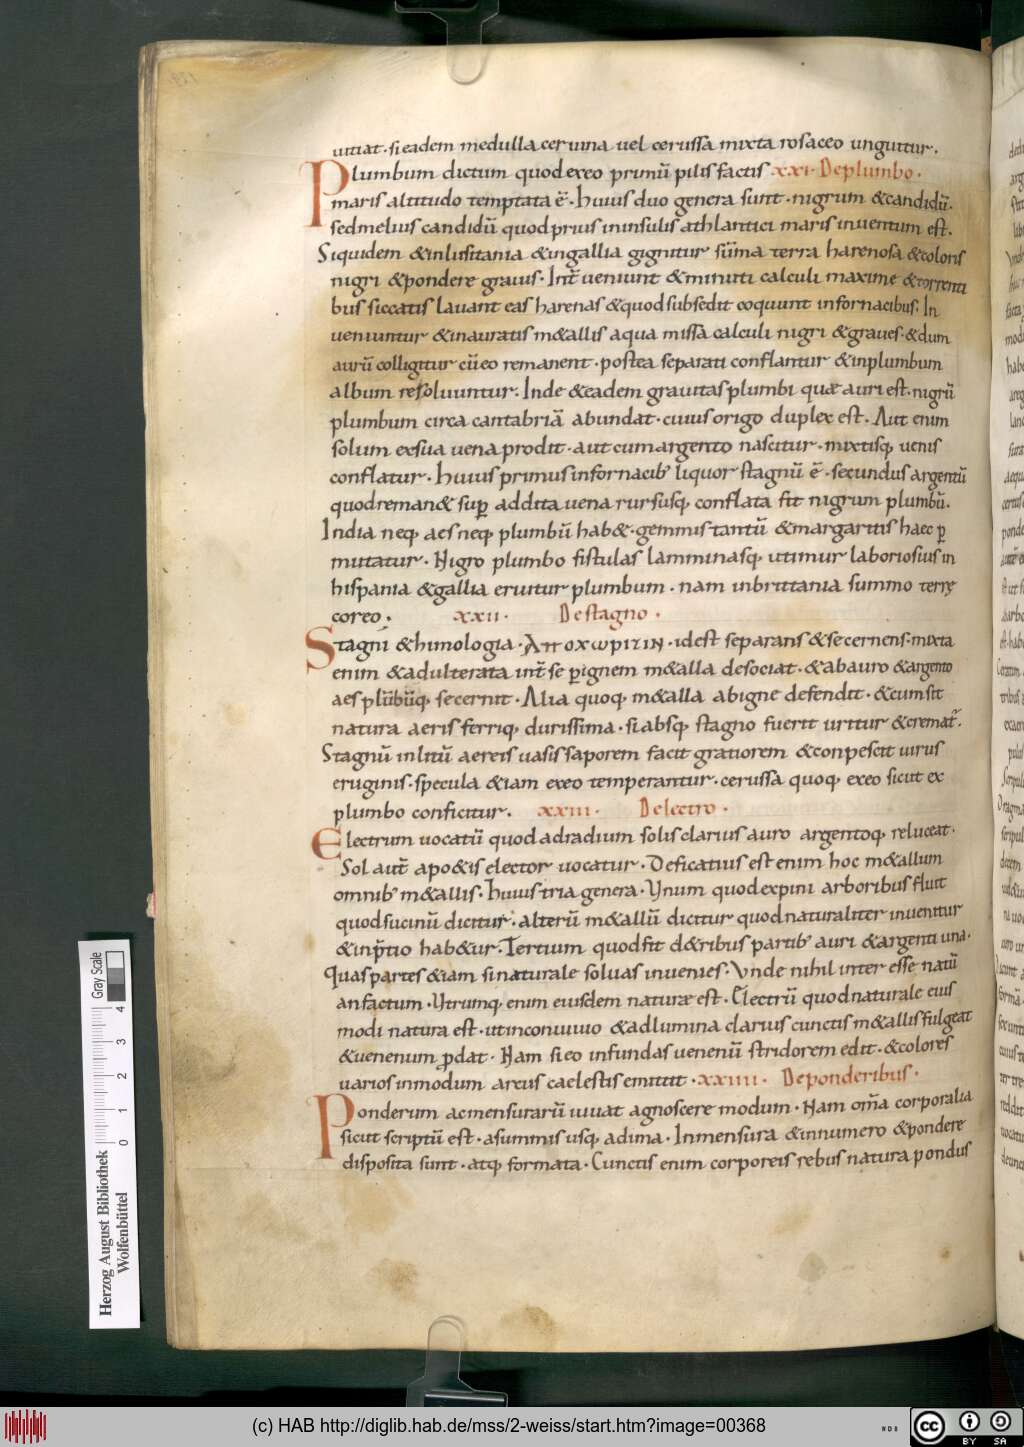 uitiat · si eadem medulla ceruina uel cerussa mixta rosaceo unguitur .
Plumbum dictum quod exeo primū pilis factis xxi · De plumbo .
maris altitudo temptata ē · huius duo genera sunt · nigrum & candidū .
sed melius candidū quod prius in insulis athlantici maris inuentum est .
Siquidem & in lusitania & in gallia gignitur sūma terra harenosa & coloris
nigri & pondere grauis · Int̄ ueniunt & minuti calculi maxime & torrenti
bus siccatis Lauant eas harenas & quod subsedit coquunt in fornacibus · In
ueniuntur & in auratis m&allis aqua missa calculi nigri & graues · & dum
aurū colligitur cū eo remanent · postea separati conflantur & in plumbum
album resoluuntur . Inde & eadem grauitas plumbi quae auri est . nigrū
plumbum circa cantabriā abundat · cuius origo duplex est . Aut enim
solum ex sua uena prodit · aut cum argento nascitur · mixtisq; uenis
conflatur · huius primus in fornacib; liquor stagnū ē · secundus argentū
quod reman& sup addita uena rursusq; conflata fit nigrum plumbū .
India neq; aes neq; plumbū hab& · gemmis tantū & margaritis haec p
mutatur · Nigro plumbo fistulas lamminasq; utimur laboriosius in
hispania & gallia eruitur plumbum · nam in brittania summo terrę
coreo . xxii · De stagno .
Stagni & himologia · Αποχωριζιν · id est separans & secernens · mixta
enim & adulterata int̄ se p ignem m&alla desociat · & ab auro & argento
aes plūbūq; secernit · Alia quoq; m&alla ab igne defendit · & cum sit
natura aeris ferriq; durissima · si absq; stagno fuerit uritur & cremat̄ .
Stagnū inlitū aereis uasis saporem facit gratiorem & conpescit uirus
eruginis · specula &iam exeo temperantur · cerussa quoq; exeo sicut ex
plumbo conficitur . xxiii · De lectro .
Electrum uocatū quod ad radium solis clarius auro argentoq; reluceat ·
Sol aut̄ apo&is elector uocatur · Deficatius est enim hoc m&allum
omnib; m&allis · huius tria genera · Unum quod ex pini arboribus fluit
quod sucinū dicitur · alterū m&allū dicitur quod naturaliter inuenitur
& in p̄tio hab&ur · Tertium quod fit d& ribus partib; auri & argenti una ·
Quas partes &iam si naturale soluas inuenies · Unde nihil inter esse natū
an factum · Utrumq; enim eiusdem naturae est · Electrū quod naturale eius
modi natura est · ut in conuiuio & ad lumina clarius cunctis m&allis fulgeat
& uenenum pdat · Nam si eo infundas uenenū stridorem edit · & colores
uarios in modum arcus caelestis emittit · xxiiii · De ponderibus ·
Ponderum ac mensurarū iuuat agnoscere modum · Nam om̄a corporalia
sicut scriptū est · a summis usq; ad ima · In mensura & in numero & pondere
disposita sunt · atq; formata · Cunctis enim corporeis rebus natura pondus
Herzog August Bibliothek
Wolfenbüttel
Gray Scale
0 1 2 3 4
(c) HAB http://diglib.hab.de/mss/2-weiss/start.htm?image=00368
cc BY SA